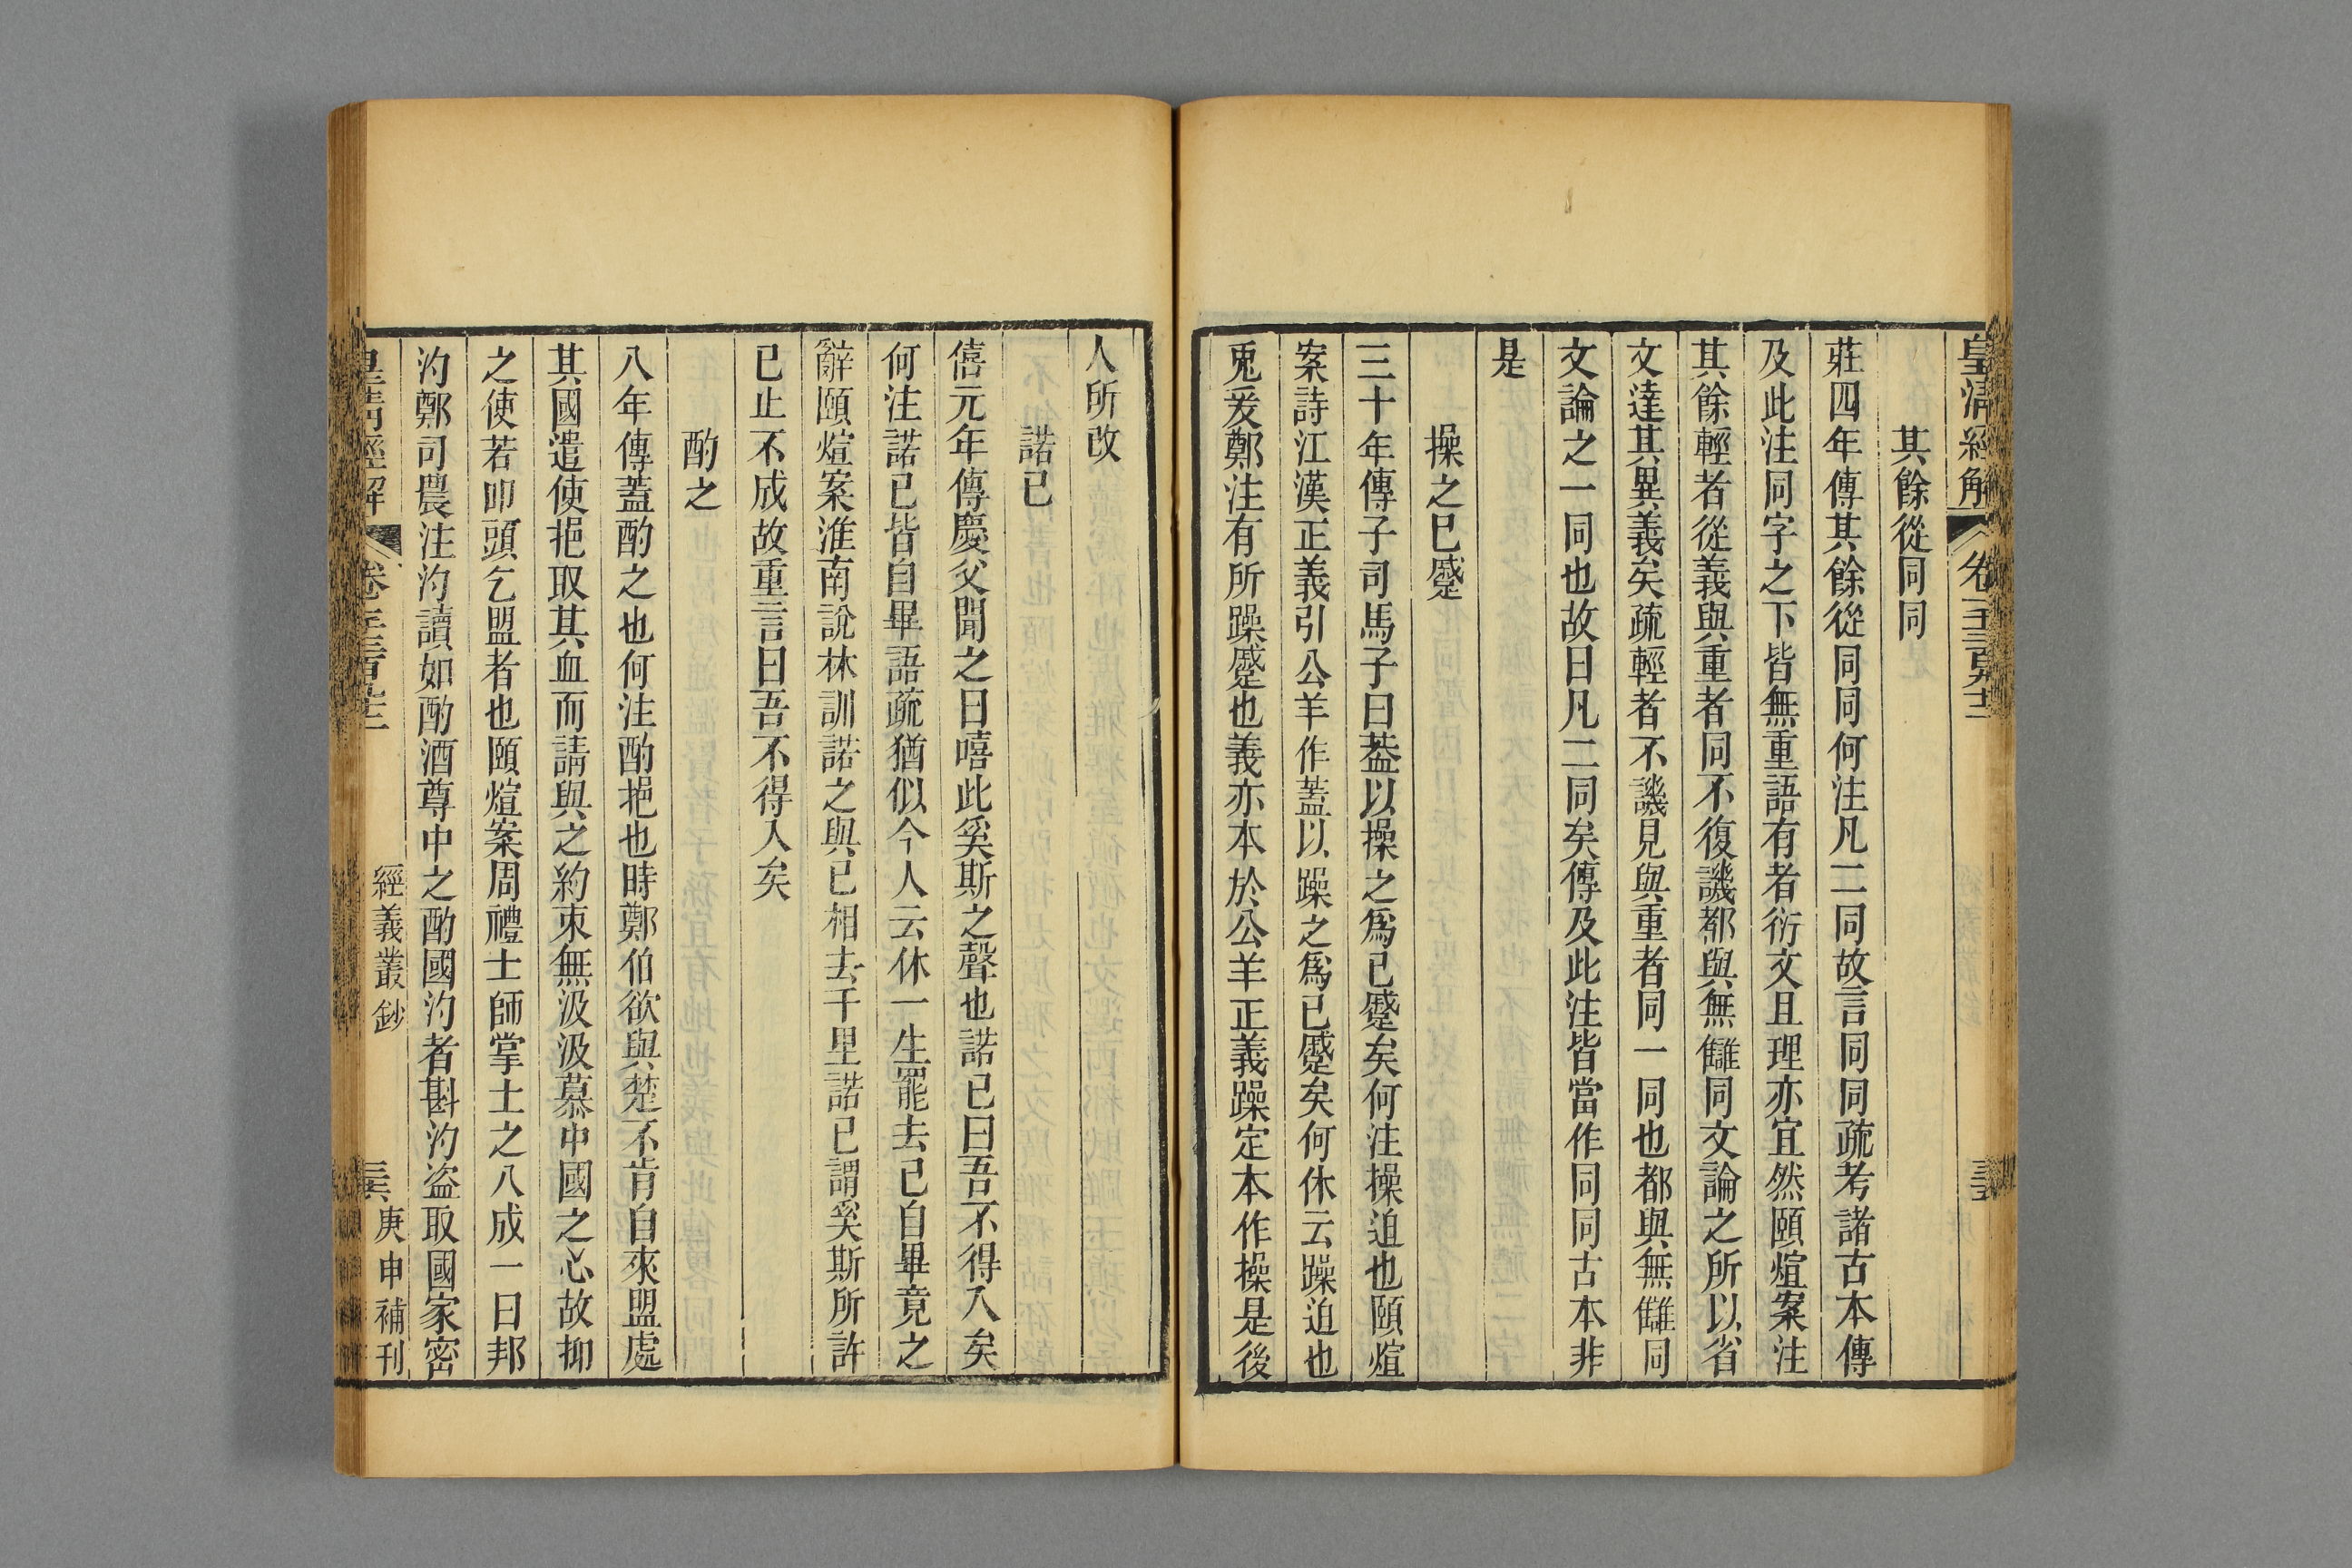 皇清經解
卷一千三百九十二
其餘從同同
莊四年傳其餘從同同何注凡二同故言同同疏考諸古本傳
及此注同字之下皆無重語有者衍文且理亦宜然頤煊案注
其餘輕者從義與重者同不復譏都與無讎同文論之所以省
文達其異義矣疏輕者不譏見與重者同一同也都與無讎同
文論之一同也故曰凡二同矣傳及此注皆當作同同古本非
是
操之已蹙
三十年傳子司馬子曰蓋以操之爲已蹙矣何注操迫也頤煊
案詩江漢正義引公羊作蓋以躁之爲已蹙矣何休云躁迫也
兎爰鄭注有所躁蹙也義亦本於公羊正義躁定本作操是後
人所改
諾已
僖元年傳慶父聞之曰嘻此奚斯之聲也諾已曰吾不得入矣
何注諾已皆自畢語疏猶似今人云休一生罷去已自畢竟之
辭頤煊案淮南說林訓諾之與已相去千里諾已謂奚斯所許
已止不成故重言曰吾不得入矣
酌之
八年傳蓋酌之也何注酌挹也時鄭伯欲與楚不肯自來盟處
其國遣使挹取其血而請與之約束無汲汲慕中國之心故抑
之使若叩頭乞盟者也頤煊案周禮士師掌士之八成一曰邦
汋鄭司農注汋讀如酌酒尊中之酌國汋者斟汋盜取國家密
皇清經解
經義叢鈔
庚申補刊